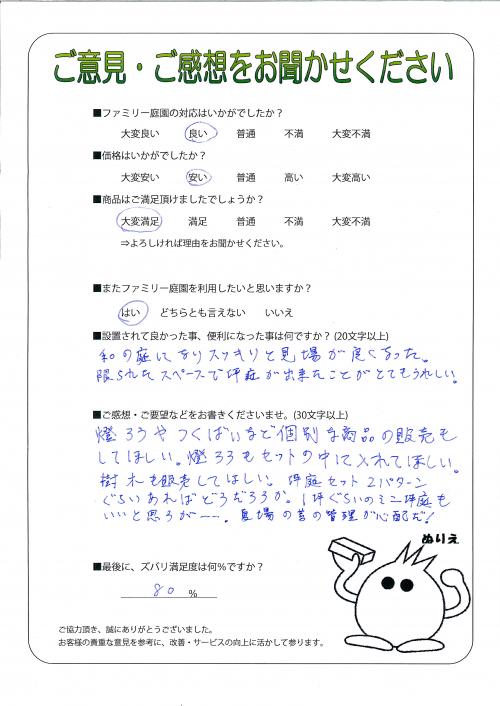 ご意見・ご感想をお聞かせください
■ファミリー庭園の対応はいかがでしたか？
大変良い 良い 普通 不満 大変不満
■価格はいかがでしたか？
大変安い 安い 普通 高い 大変高い
■商品はご満足頂けましたでしょうか？
大変満足 満足 普通 不満 大変不満
⇒よろしければ理由をお聞かせください。
■またファミリー庭園を利用したいと思いますか？
はい どちらとも言えない いいえ
■設置されて良かった事、便利になった事は何ですか？(20文字以上)
和の庭になりスッキリと見場が良くなった。
限られたスペースで坪庭が出来たことがとてもうれしい。
■ご感想・ご要望などをお書きくださいませ。(30文字以上)
燈ろうやつくばいなど個別な商品の販売も
してほしい。燈ろうもセットの中に入れてほしい。
樹木も販売してほしい。坪庭セット2パターン
ぐらいあればどうだろうか。1坪ぐらいのミニ坪庭も
いいと思うが――。夏場の苔の管理が心配だ!
ぬりえ
■最後に、ズバリ満足度は何％ですか？
80 %
ご協力頂き、誠にありがとうございました。
お客様の貴重な意見を参考に、改善・サービスの向上に活かして参ります。